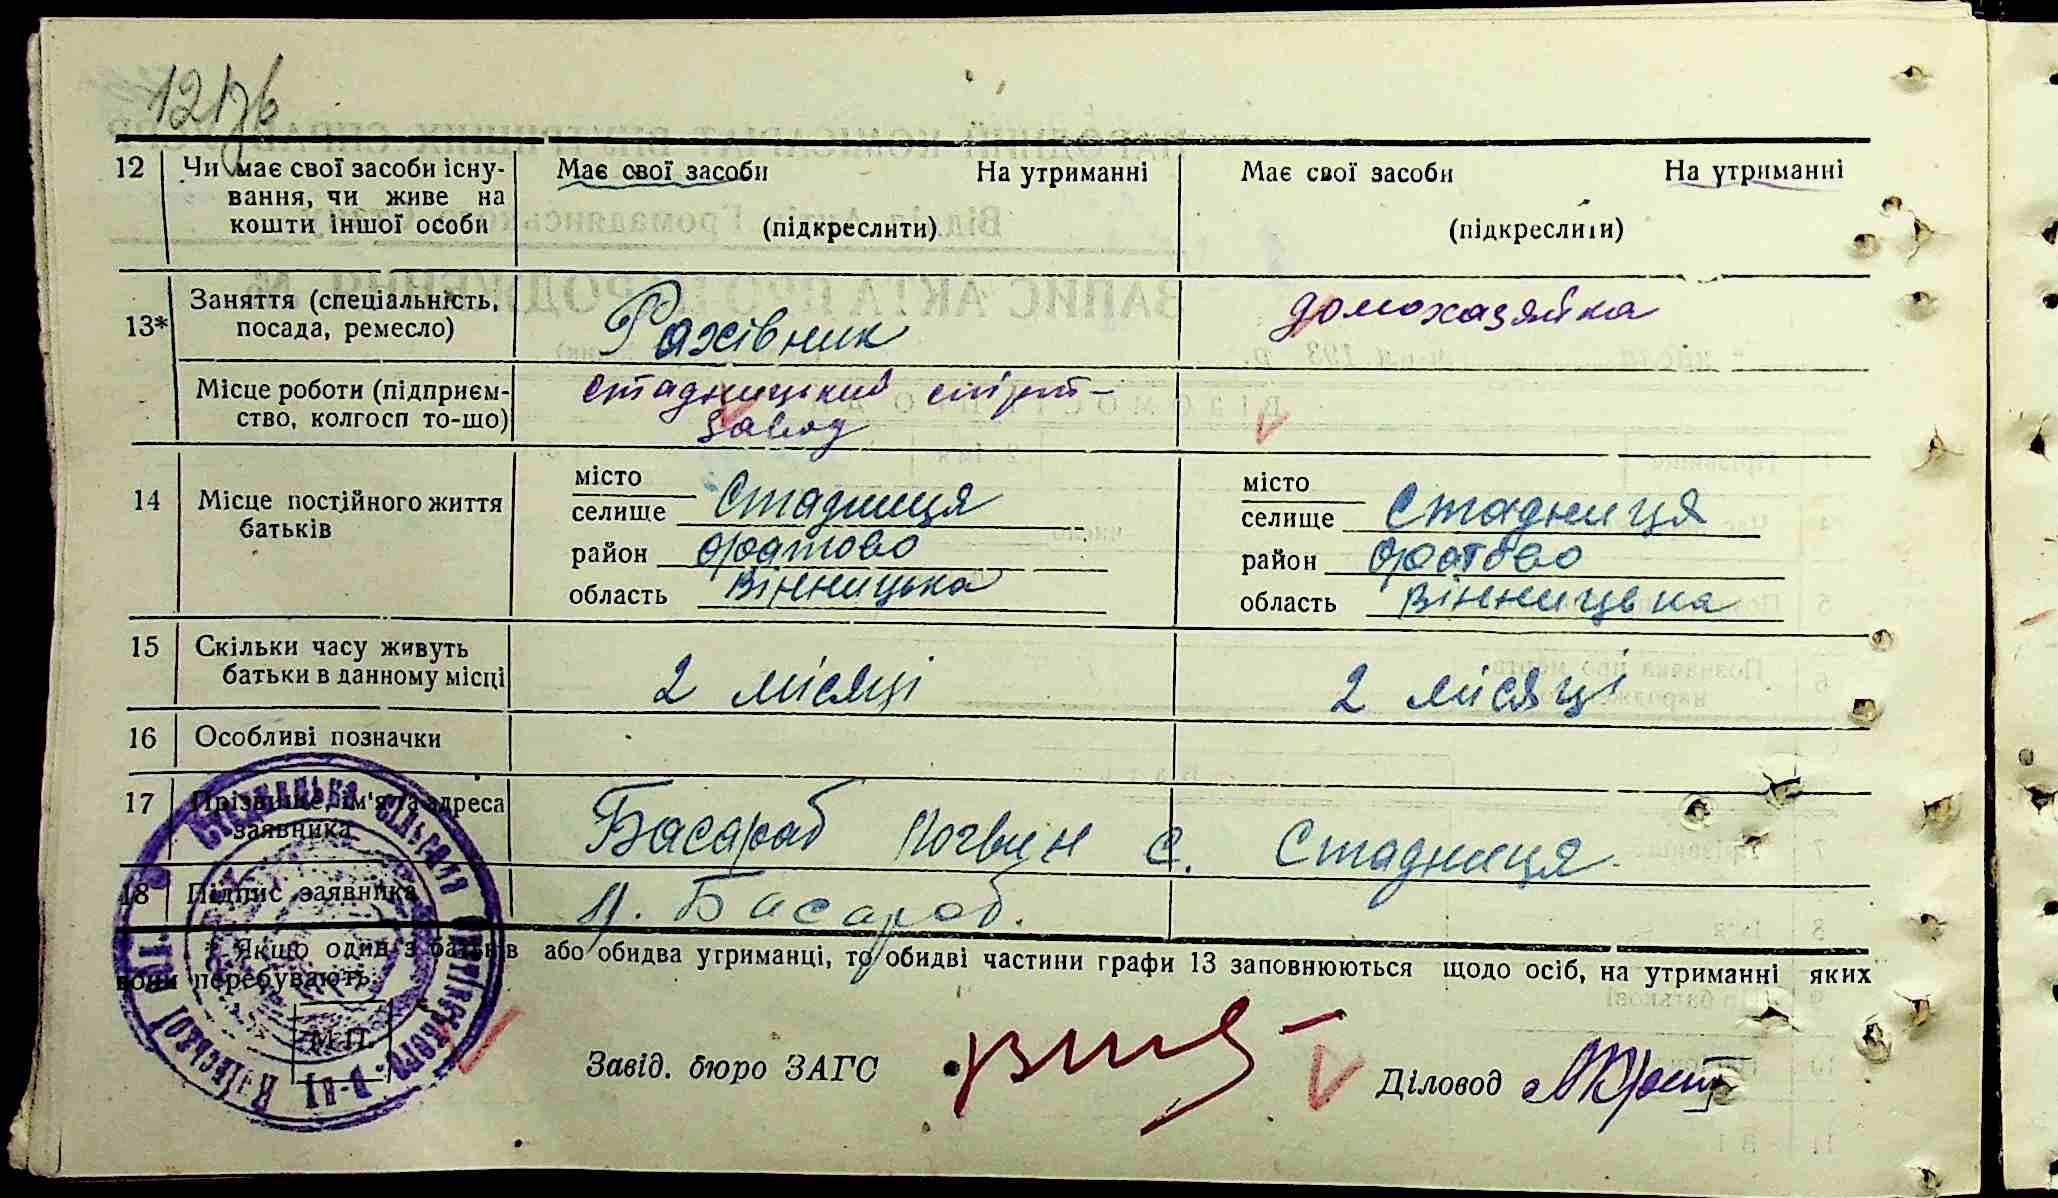 12
Чи має свої засоби існу-
вання, чи живе на
кошти іншої особи
Має свої засоби На утриманні
(підкреслити)
Має свої засоби На утриманні
(підкреслити)
13*
Заняття (спеціальність,
посада, ремесло)
Рахівник
домохазяйка
Місце роботи (підприєм-
ство, колгосп то-що)
Стадницький спирт-
завод
14
Місце постійного життя
батьків
місто
селище Стадниця
район Оратово
область Вінницька
місто
селище Стадниця
район Оратово
область Вінницька
15
Скільки часу живуть
батьки в данному місці
2 місяці
2 місяці
16
Особливі позначки
17
Прізвище, ім'я та адреса
заявника
Басараб Логвин с. Стадниця
18
Підпис заявника
Л. Басараб.
* Якщо один з батьків або обидва утриманці, то обидві частини графи 13 заповнюються щодо осіб, на утриманні яких
вони перебувають.
М.П.
Завід. бюро ЗАГС
Діловод